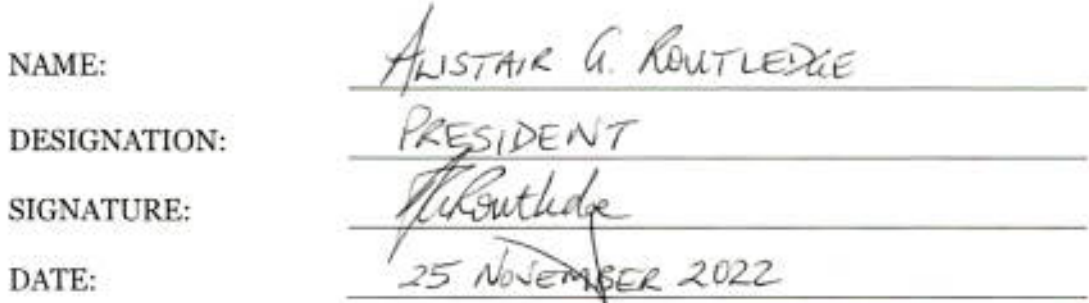 NAME: ALISTAIR G. ROUTLEDGE
DESIGNATION: PRESIDENT
SIGNATURE: AGRoutledge
DATE: 25 NOVEMBER 2022